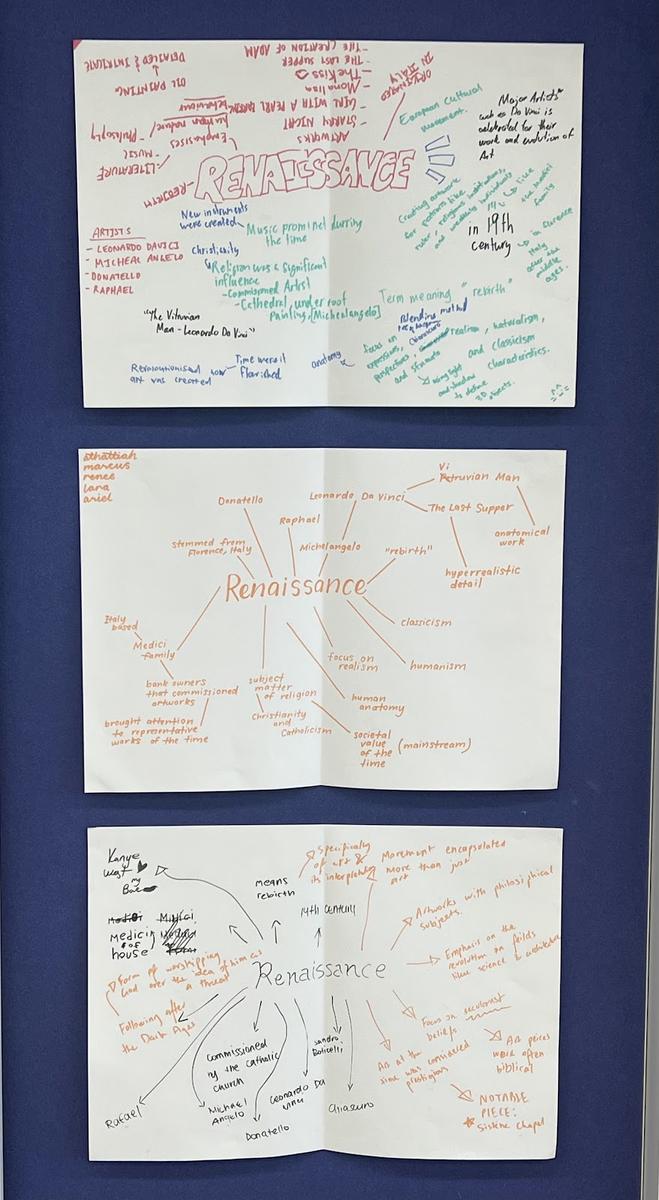 DETAILED & INTRICATE
OIL PAINTING
- THE CREATION OF ADAM
- THE LAST SUPPER
- The Kiss
- Mona lisa
- GIRL WITH A PEARL EARRING
- STARRY NIGHT
ARTWORKS
ORIGINATED
IN ITALY
Emphasises
human nature/
behaviour
- PHILOSOPHY
- MUSIC
- LITERATURE
- REBIRTH
RENAISSANCE
European Cultural
movement.
Major Artists
such as Da Vinci is
celebrated for their
work and evolution of
Art
Creating artwork
for patrons like
rulers, religious institutions,
and wealthy individuals
like
the Medici
family
in 19th
century
in Florence
Italy
after the
middle
ages.
New instruments
were created
Music prominet durring
the time
ARTISTS
- LEONARDO DAVICI
- MICHEAL ANGELO
- DONATELLO
- RAPHAEL
Christianity
Religion was a significant
influence
- Commisioned Artist
- Cathedral, under roof
Painting, [Michealangelo]
"The Vitruvian
Man - Leonardo Da Vinci"
Revoloutionised how
art was created
Time were it
Flourished
Term meaning "rebirth"
Blending method
anatomy
focus on
expressions,
perspectives,
realism, naturalism,
and classicism
characteristics.
using light
and shadow
to define
3D objects.
athattiah
marcus
renee
lana
ariel
Donatello
Leonardo Da Vinci
Vi
Petruvian Man
The Last Supper
anatomical
work
hyperrealistic
detail
Raphael
Michelangelo
stemmed from
Florence, Italy
"rebirth"
Renaissance
classicism
humanism
Italy
based
Medici
family
bank owners
that commissioned
artworks
brought attention
to representative
works of the time
subject
matter
of religion
Christianity
and
Catholicism
focus on
realism
human
anatomy
societal
value (mainstream)
of the
time
Kanye
west
my
Bae
means
rebirth
Specifically
of art &
its interpretation
Movement encapsulated
more than just
art
14th century
Artworks with philosiphical
subjects.
medicin
of
house
Renaissance
Emphasis on the
revolution on feilds
like science & architecture
Form of worshipping
God over the idea of him as
a threat
Following after
the Dark Ages
Focus in secularist
beliefs
Art pieces
were often
biblical
Art at the
time was considered
prestigious
NOTABLE
PIECE:
Sistene Chapel
Commissioned
by the catholic
church
Sandro
Boticelli
Rafael
Michael
Angelo
Donatello
Leonardo Da
Vinci
Chiascuro